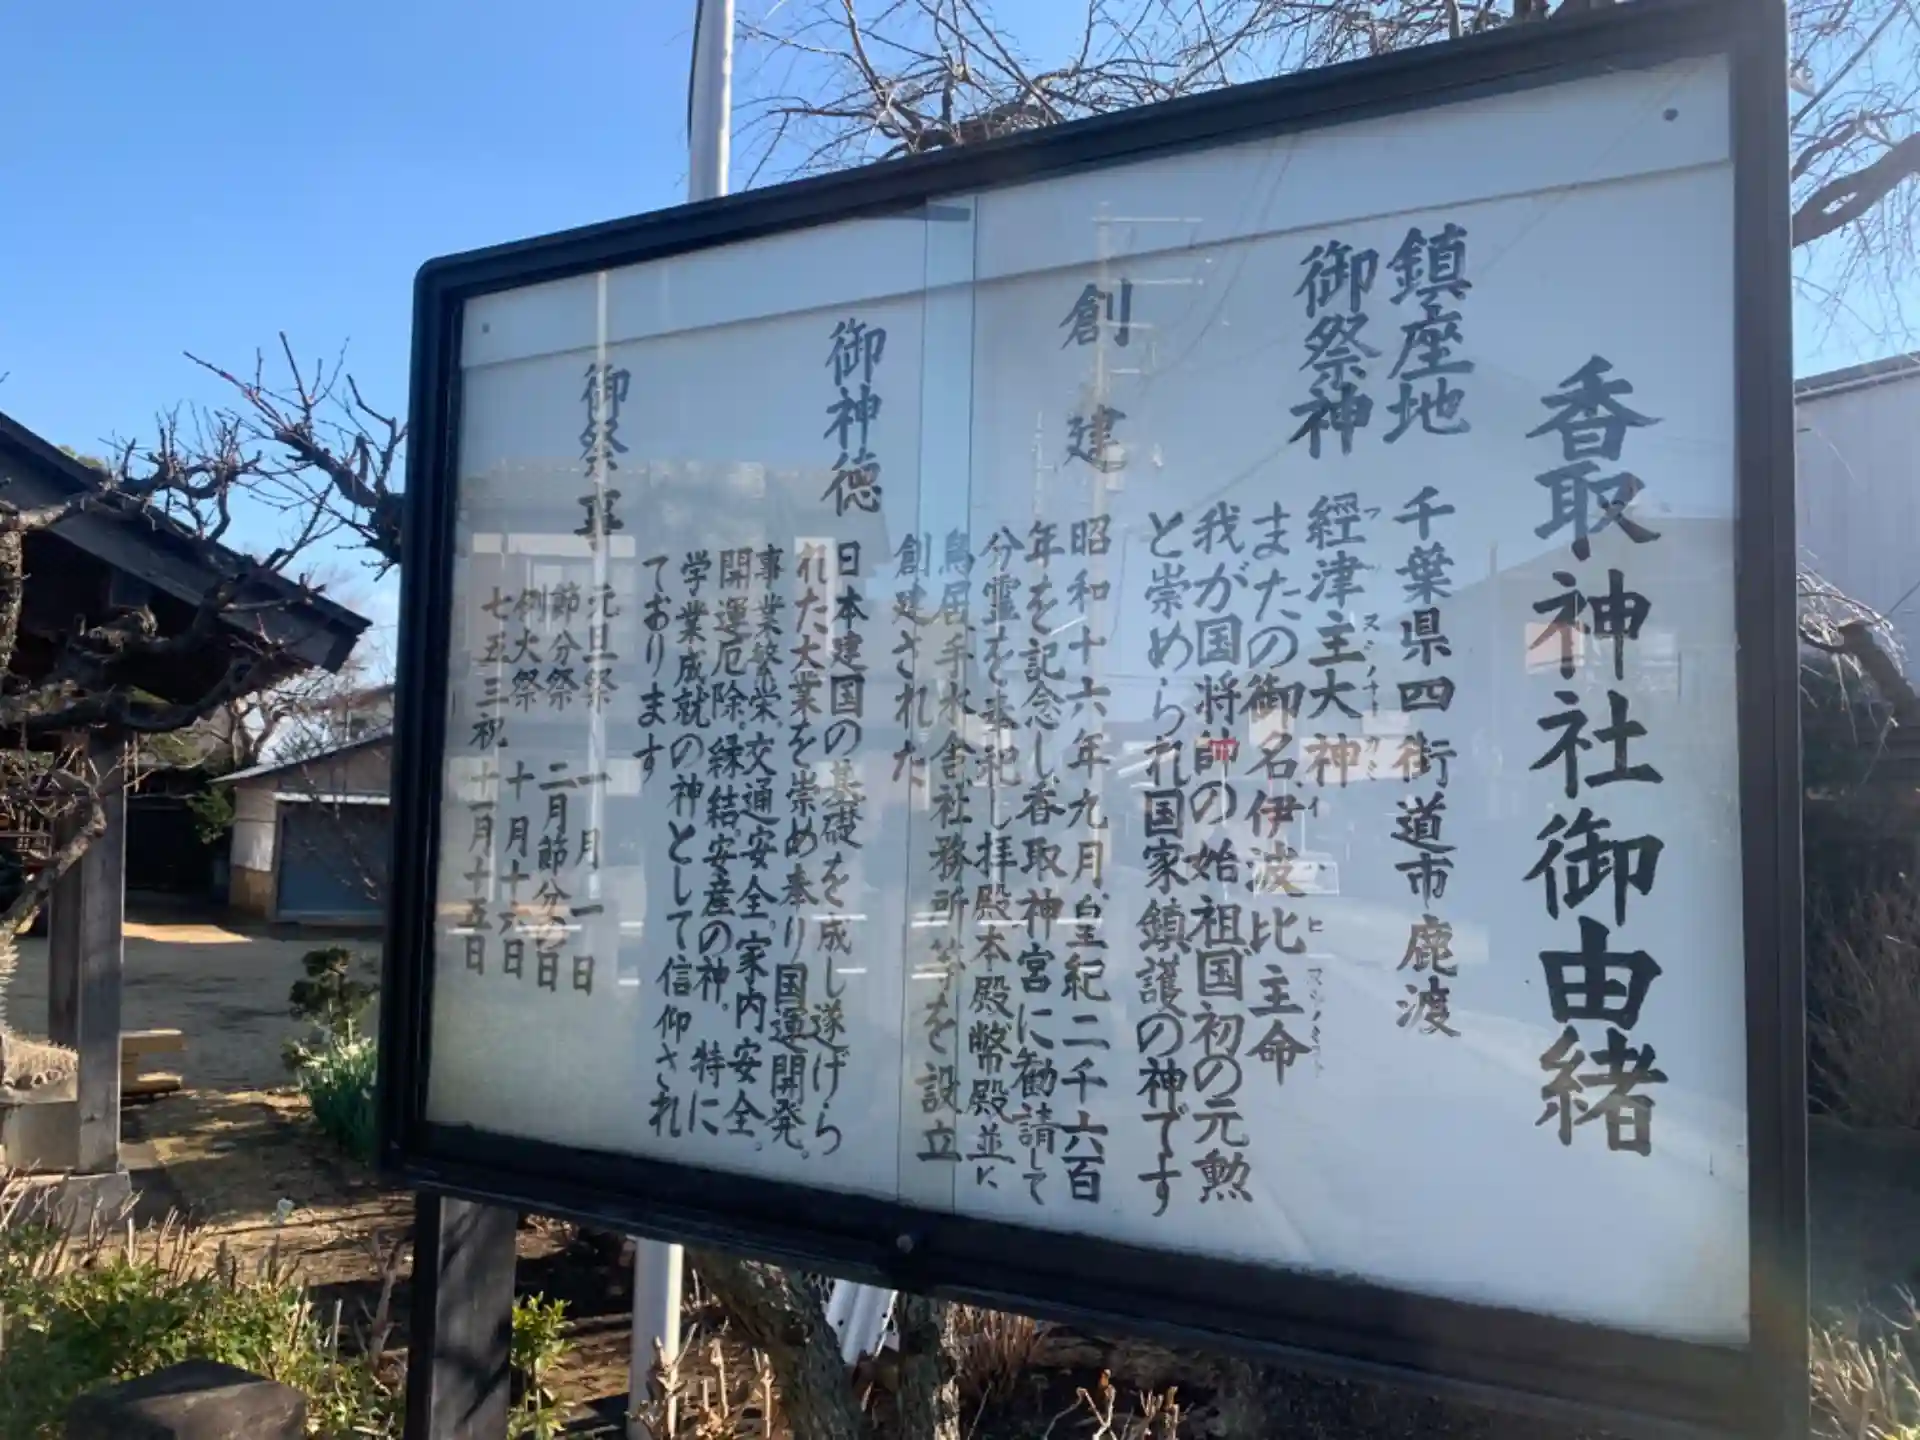 香取神社御由緒
鎮座地 千葉県四街道市鹿渡
御祭神 經津主大神
フツヌシノオオカミ
またの御名、伊波比主命
イハヒヌシノミコト
我が国将帥の始祖国初の元勲
と崇められ国家鎮護の神です
創建 昭和十六年九月、皇紀二千六百
年を記念し香取神宮に勧請して
分霊を奉祀し拝殿本殿幣殿並に
鳥居、手水舎社務所等を設立
創建された
御神徳 日本建国の基礎を成し遂げら
れた大業を崇め奉り国運開発。
事業繁栄、交通安全。家内安全。
開運厄除、縁結、安産の神。特に
学業成就の神として信仰され
ております
御祭事 元旦祭 一月一日
節分祭 二月節分の日
例大祭 十月十六日
七五三祝 十一月十五日